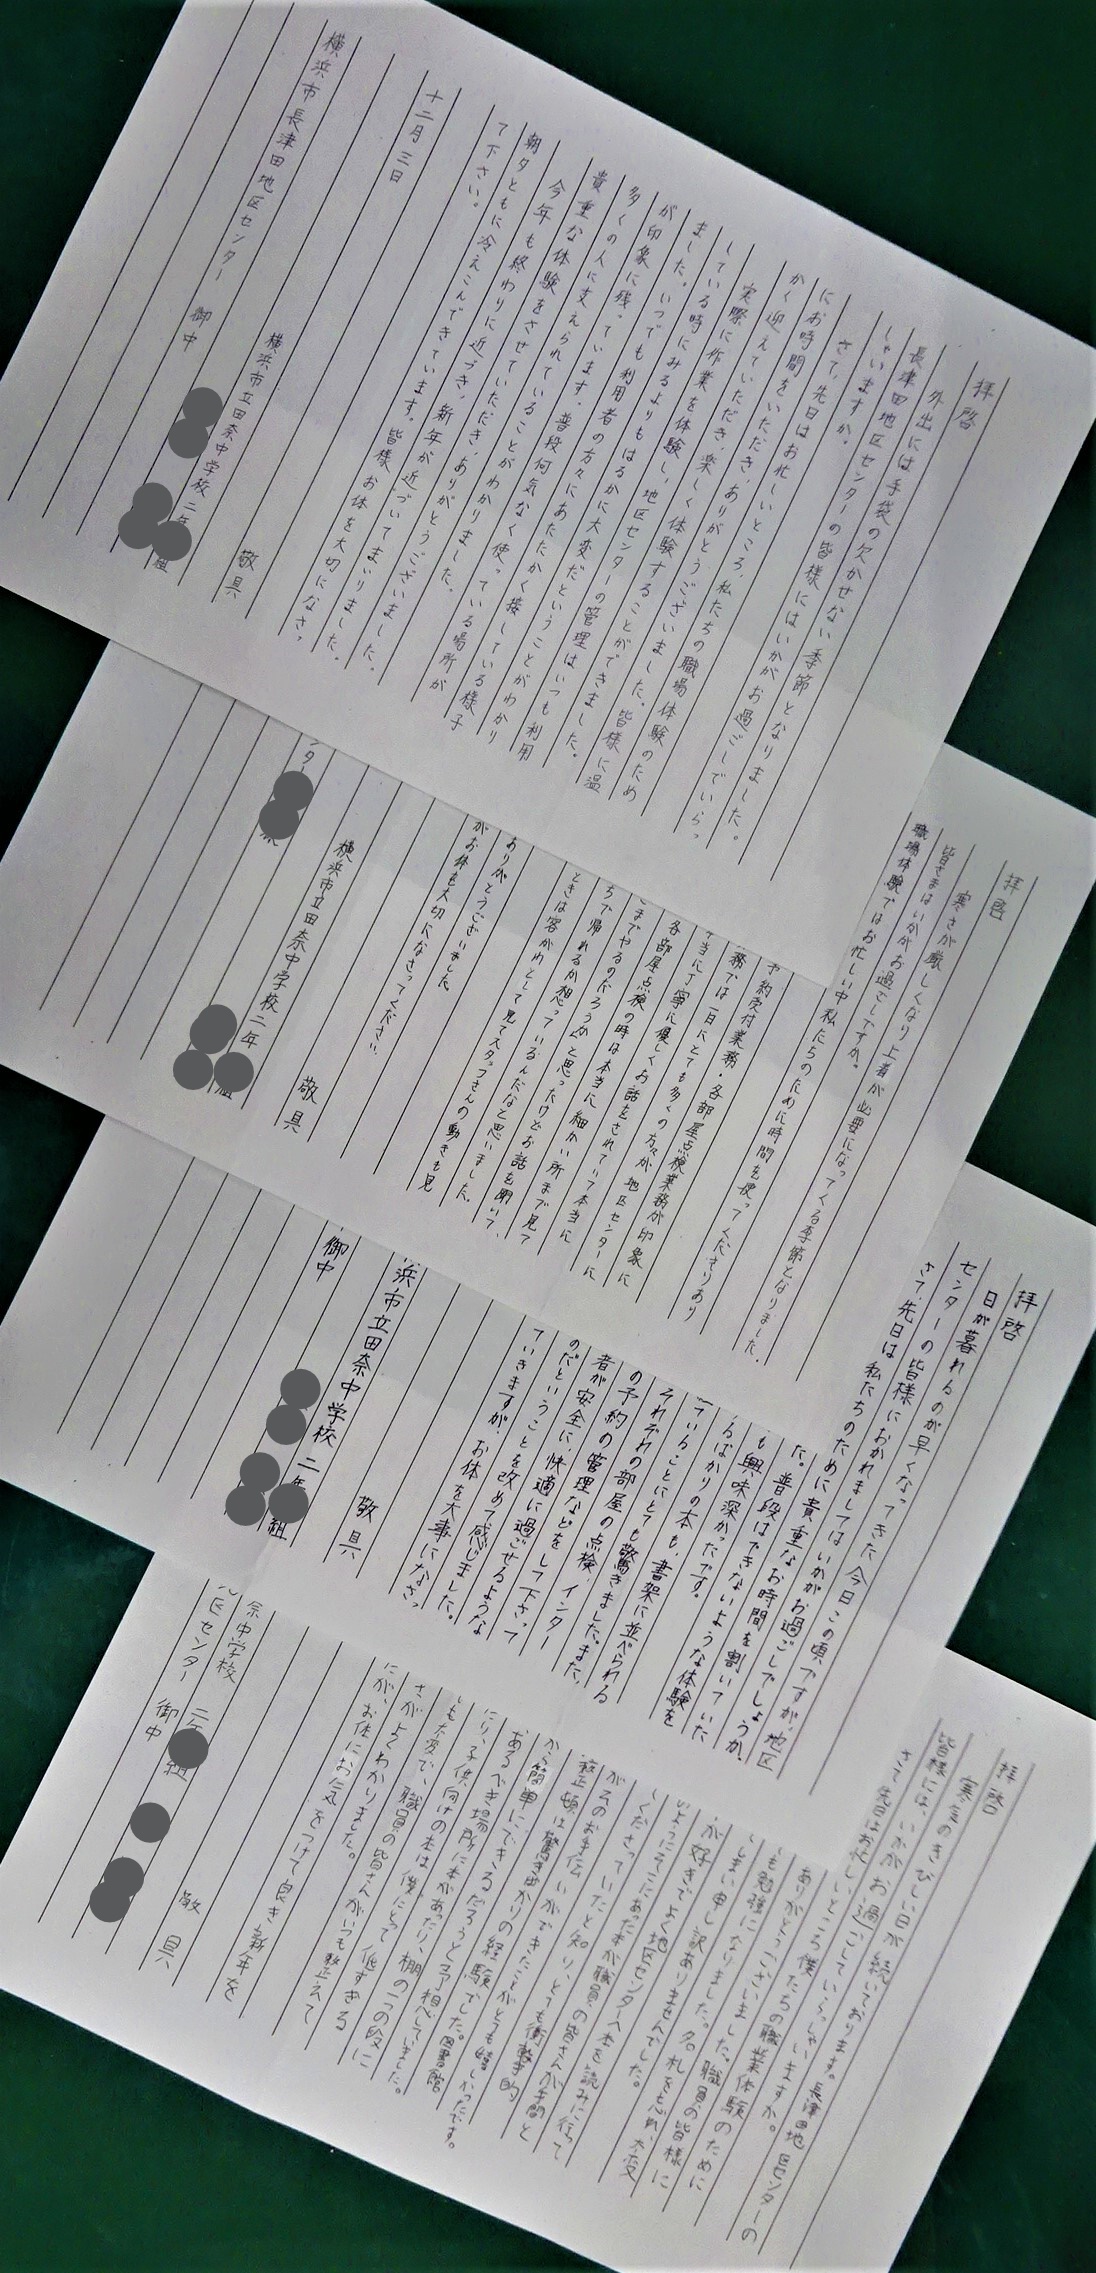 拝啓
外出には手袋の欠かせない季節となりました。
長津田地区センターの皆様にはいかがお過ごしでいらっ
しゃいますか。
さて、先日はお忙しいところ、私たちの職場体験のため
にお時間をいただき、ありがとうございました。皆様に温
かく迎えていただき、楽しく体験することができました。
実際に作業を体験し、地区センターの管理はいつも利用
している時にみるよりもはるかに大変だということがわかり
ました。いつでも利用者の方々にあたたかく接している様子
が印象に残っています。普段何気なく使っている場所が
多くの人に支えられていることがわかりました。
貴重な体験をさせていただき、ありがとうございました。
今年も終わりに近づき、新年が近づいてまいりました。
朝夕ともに冷えこんできています。皆様お体を大切になさっ
て下さい。
敬具
十二月三日
横浜市立田奈中学校二年 組
横浜市長津田地区センター 御中
拝啓
寒さが厳しくなり上着が必要になってくる季節となりました。
皆さまはいかがお過ごしですか。
職場体験ではお忙しい中私たちのために時間を使ってくださりあり
予約受付業務・各部屋点検業務が印象に
務では一日にとても多くの方々が地区センターに
当に丁寧に優しくお話をされていて本当に
各部屋点検の時は本当に細かい所まで見て
までやるのだろうか と思ったけどお話を聞いて、
ちで帰れるか想っているんだなと思いました。
ときは客がわとして見てスタッフさんの動きも見
ありがとうございました
がお体を大切になさってください。
敬具
横浜市立田奈中学校二年 組
ンター
拝啓
日が暮れるのが早くなってきた今日この頃ですが、地区
センターの皆様におかれましてはいかがお過ごしでしょうか。
さて、先日は私たちのために貴重なお時間を割いていた
た。普段はできないような体験を
も興味深かったです。
るばかりの本も、書架に並べられる
ていることにとても驚きました。また、
それぞれの部屋の点検、インター
の予約の管理などをして下さって
者が安全に、快適に過ごせるような
のだということを改めて感じました。
ていきますが、お体を大事になさっ
敬具
浜市立田奈中学校 二年 組
御中
拝啓
寒さのきびしい日が続いております。長津田地区センターの
皆様には、いかがお過ごしでいらっしゃいますか。
さて先日はお忙しいところ僕たちの職業体験のために
ありがとうございました。職員の皆様に
も勉強になりました。名札を忘れ、大変
しまい申し訳ありませんでした。
が好きでよく地区センターへ本を読みに行って
いようにそこにあった本が職員の皆さんが手間と
しくださっていたと知り、とても衝撃的
がえのお手伝いができたことがとても嬉しかったです。
整正頓は驚きばかりの経験でした。図書館
から簡単にできるだろうと予想していました。
あるべき場所に本があったり、棚の一つの段に
たり、子供向けの本は、僕にとって低すぎる
も大変で、職員の皆さんがいつも整えて
さがよくわかりました。
にが、お体にお気をつけて良き新年を
敬具
奈中学校 二年 組
区センター 御中